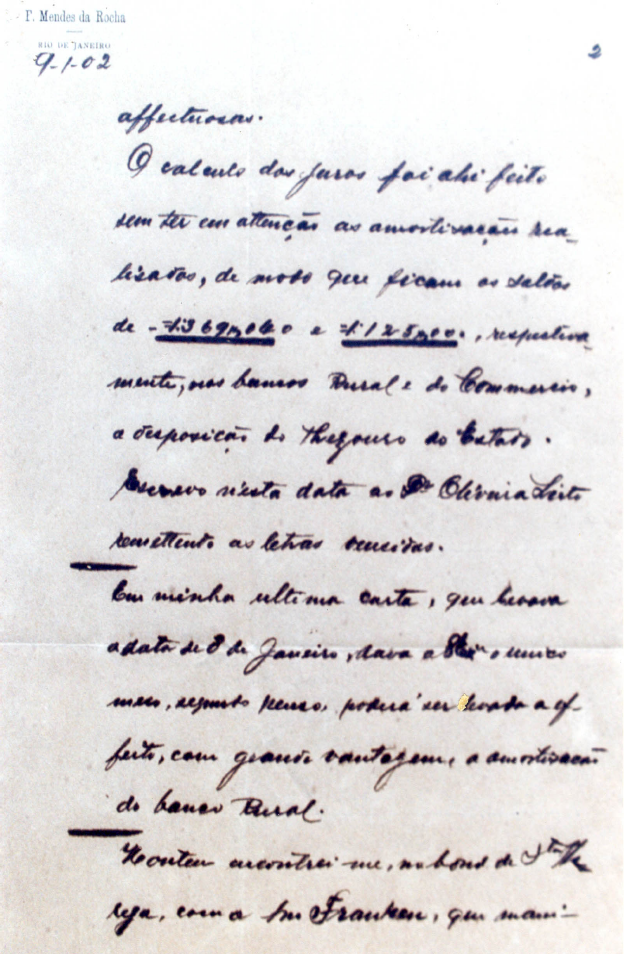 F. Mendes da Rocha
RIO DE JANEIRO
9-1-02
2
affectuosas.
O calculo dos juros foi ahi feito
sem ter em attenção as amortização rea-
lisadas, de modo que ficam os saldos
de e , respectiva-
mente, nos bancos Rural e do Commercio,
a desposição do Thezouro do Estado.
Escrevo n'esta data ao Dr Oliveira Leite
remettendo as letras vencidas.
Em minha ultima carta, que levava
a data de 8 de Janeiro, dava a o unico
meio, segundo penso, poderá ser levada a ef-
feito, com grande vantagem, a amortização
do banco Rural.
Hontem encontrei-me, no bond de Sta The-
reza, com o Franken, que mani-